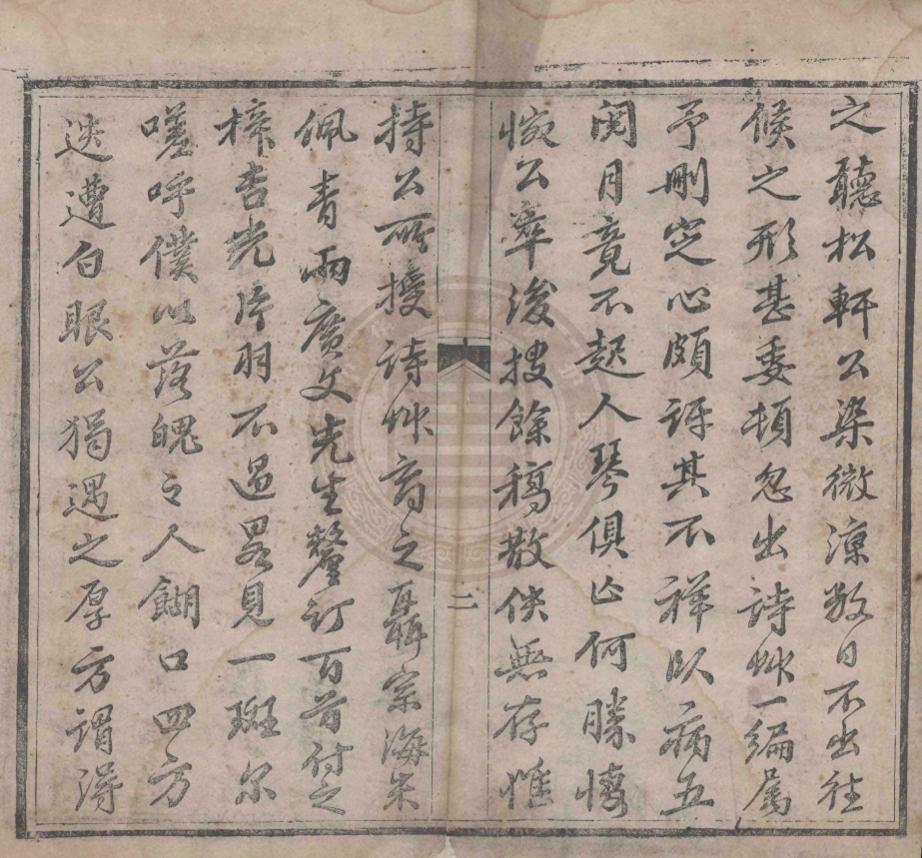 之聽松軒公染微涼数日不出往
候之形甚委頓忽出詩艸一編屬
予刪定心頗訝其不祥臥病五
閱月竟不起人琴俱亡何勝悽
惋公卒後搜餘稿散佚無存惟
持公所授詩艸商之聶宗海朱
佩青兩廣文先生釐訂百首付之
梓吉光片羽不過畧見一斑尔
嗟呼僕以落魄之人餬口四方
迭遭白眼公獨遇之厚方謂得
二